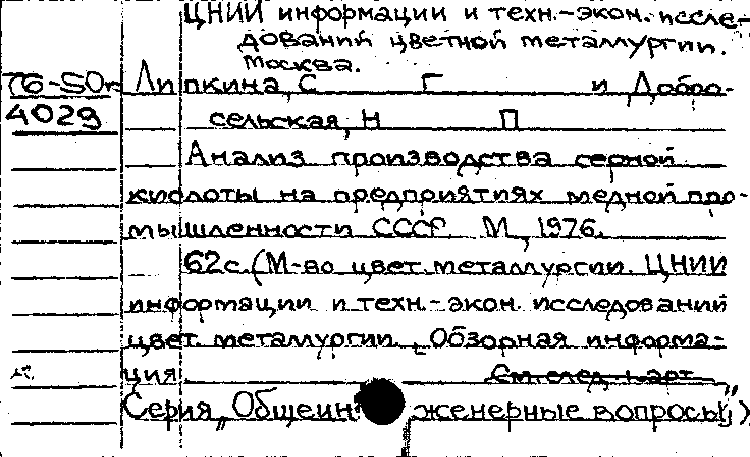 ЦНИИ информации и техн.-экон. иссле-
дований цветной металлургии.
Москва.
76-50г Липкина, С Г и Добро-
4029 сельская, Н П
Анализ производства серной
кислоты на предприятиях медной про-
мышленности СССР. М., 1976.
62с. (М-во цвет. металлургии. ЦНИИ
информации и техн.-экон. исследований
цвет. металлургии. Обзорная информа-
ция См. след. карт.
Серия „Общеинженерные вопросы")